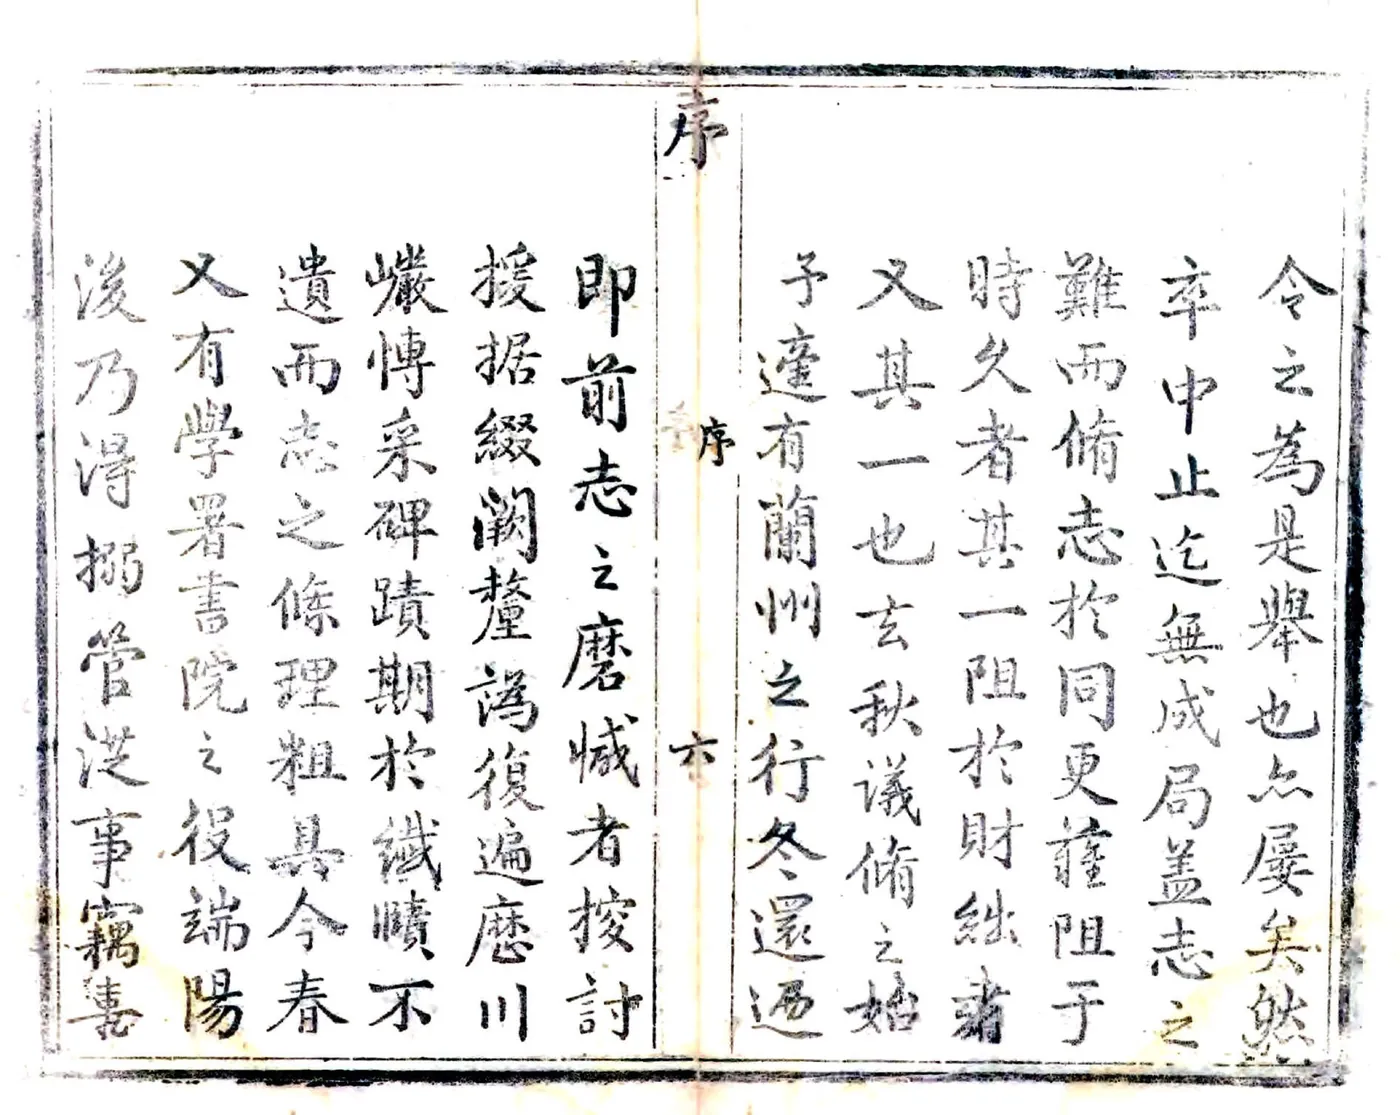 令之為是舉也亦屢矣然
卒中止迄無成局盖志之
難而脩志於同更難阻于
時久者其一阻於財絀者
又其一也玄秋議脩之始
予達有蘭州之行冬還迺
序
序
六
即前志之磨悈者挍討
援据綴闕釐譌復遍歷川
巗愽采碑蹟期於纎賾不
遺而志之條理粗具今春
又有學署書院之役端陽
後乃得搦管從事竊書